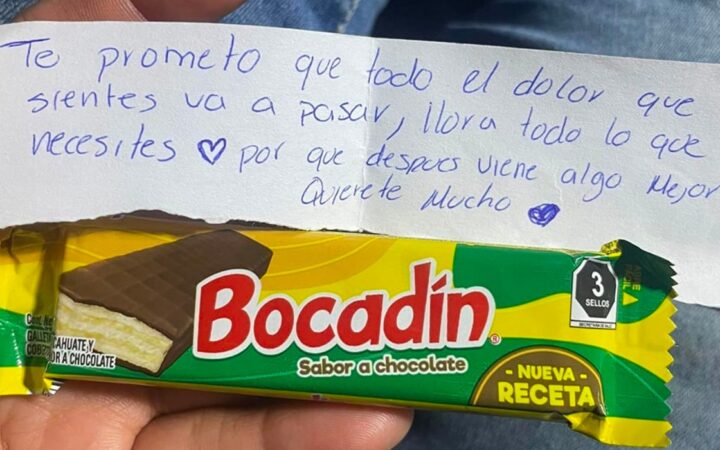 Te prometo que todo el dolor que
sientes va a pasar, llora todo lo que
necesites ♡ por que despues viene algo Mejor
Quierete Mucho
Bocadín
Sabor a chocolate
3
SELLOS
- NUEVA -
RECETA
AHUATE Y
OR A CHOCOLATE